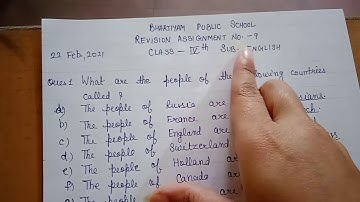 BHARTHAM PUBLIC SCHOOL
REVISION ASSIGNMENT NO. -9
22 Feb, 2021
CLASS - IVth SUB. ENGLISH
Ques 1 What are the people of the following countries
called ?
a) The people of Russia are
b) The people of France are
c) The people of England are
d) The people of Switzerland
e) The people of Holland are
f) The people of Canada are
The people are